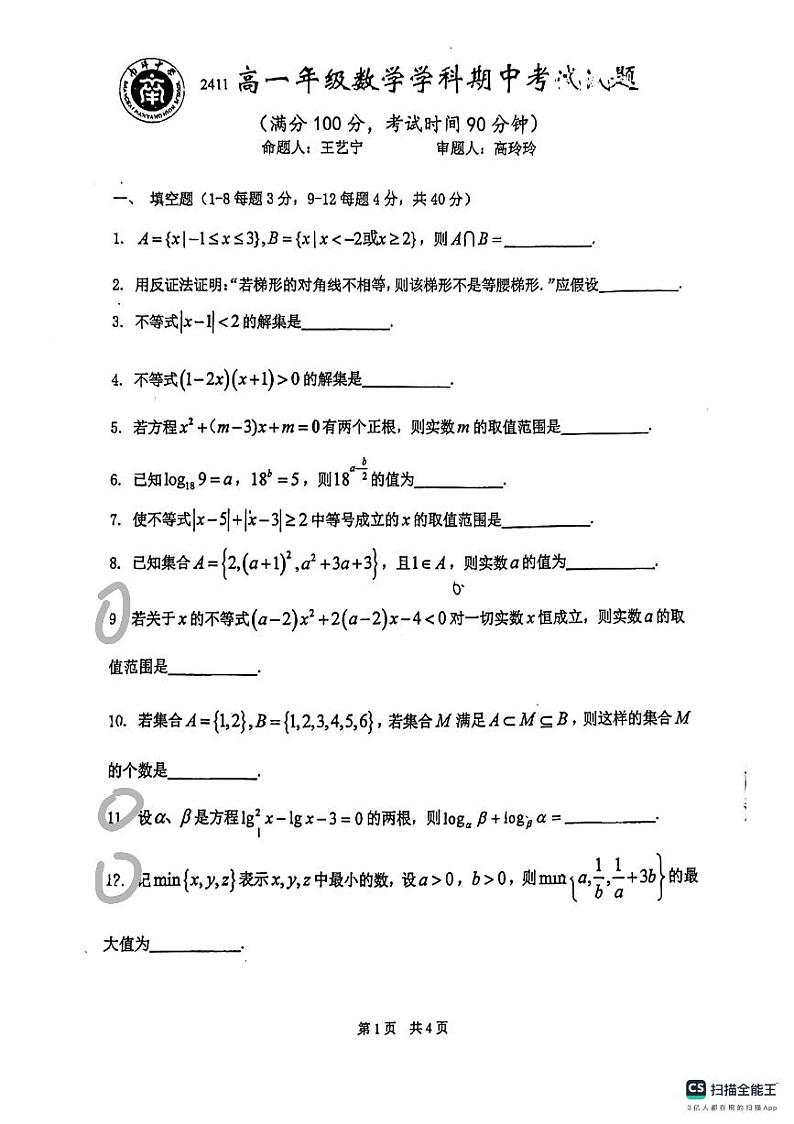 2411 高一年级数学学科期中考试试题
(满分 100 分，考试时间 90 分钟)
命题人：王艺宁 审题人：高玲玲
一、 填空题（1-8 每题 3 分，9-12 每题 4 分，共 40 分）
1. A={x|-1≤x≤3},B={x|x<-2或x≥2}，则 A⋂B=________.
2. 用反证法证明：“若梯形的对角线不相等，则该梯形不是等腰梯形.”应假设________.
3. 不等式|x-1|<2的解集是________.
4. 不等式(1-2x)(x+1)>0的解集是________.
5. 若方程x²+(m-3)x+m=0有两个正根，则实数m的取值范围是________.
6. 已知log₁₈9=a，18^b=5，则18^(a-b/2)的值为________.
7. 使不等式|x-5|+|x-3|≥2中等号成立的x的取值范围是________.
8. 已知集合A={2,(a+1)²,a²+3a+3}，且1∈A，则实数a的值为________.
9 若关于x的不等式(a-2)x²+2(a-2)x-4<0对一切实数x恒成立，则实数a的取
值范围是________.
10. 若集合A={1,2},B={1,2,3,4,5,6}，若集合M 满足A⊂M⊆B，则这样的集合M
的个数是________.
11. 设α、β是方程lg²x-lgx-3=0的两根，则log_α β+log_β α=________.
12. 记min{x,y,z}表示x,y,z中最小的数，设a>0，b>0，则min{a,1/b,1/a+3b}的最
大值为________.
第 1 页 共 4 页
CS 扫描全能王
3亿人都在用的扫描App